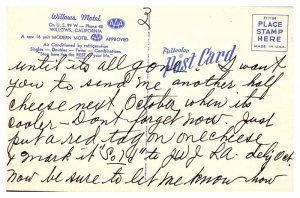 2
Willows Motel
On U. S. 99 W — Phone
WILLOWS, CALIFORNIA
A new 16 unit MODERN MOTEL AAA APPROVED
Air Conditioned by refrigeration
Singles — Doubles — Twins — Combinations
AAA
Fullcolor
Post Card
PLACE
STAMP
HERE
MADE IN U.S.A.
until its all gone. I want
you to send me another half
cheese next October when its
cooler — Dont forget now. Just
put a red tag on one cheese
& mark it "Sold" to JWJ La. dely Oct.
now be sure to let me know how